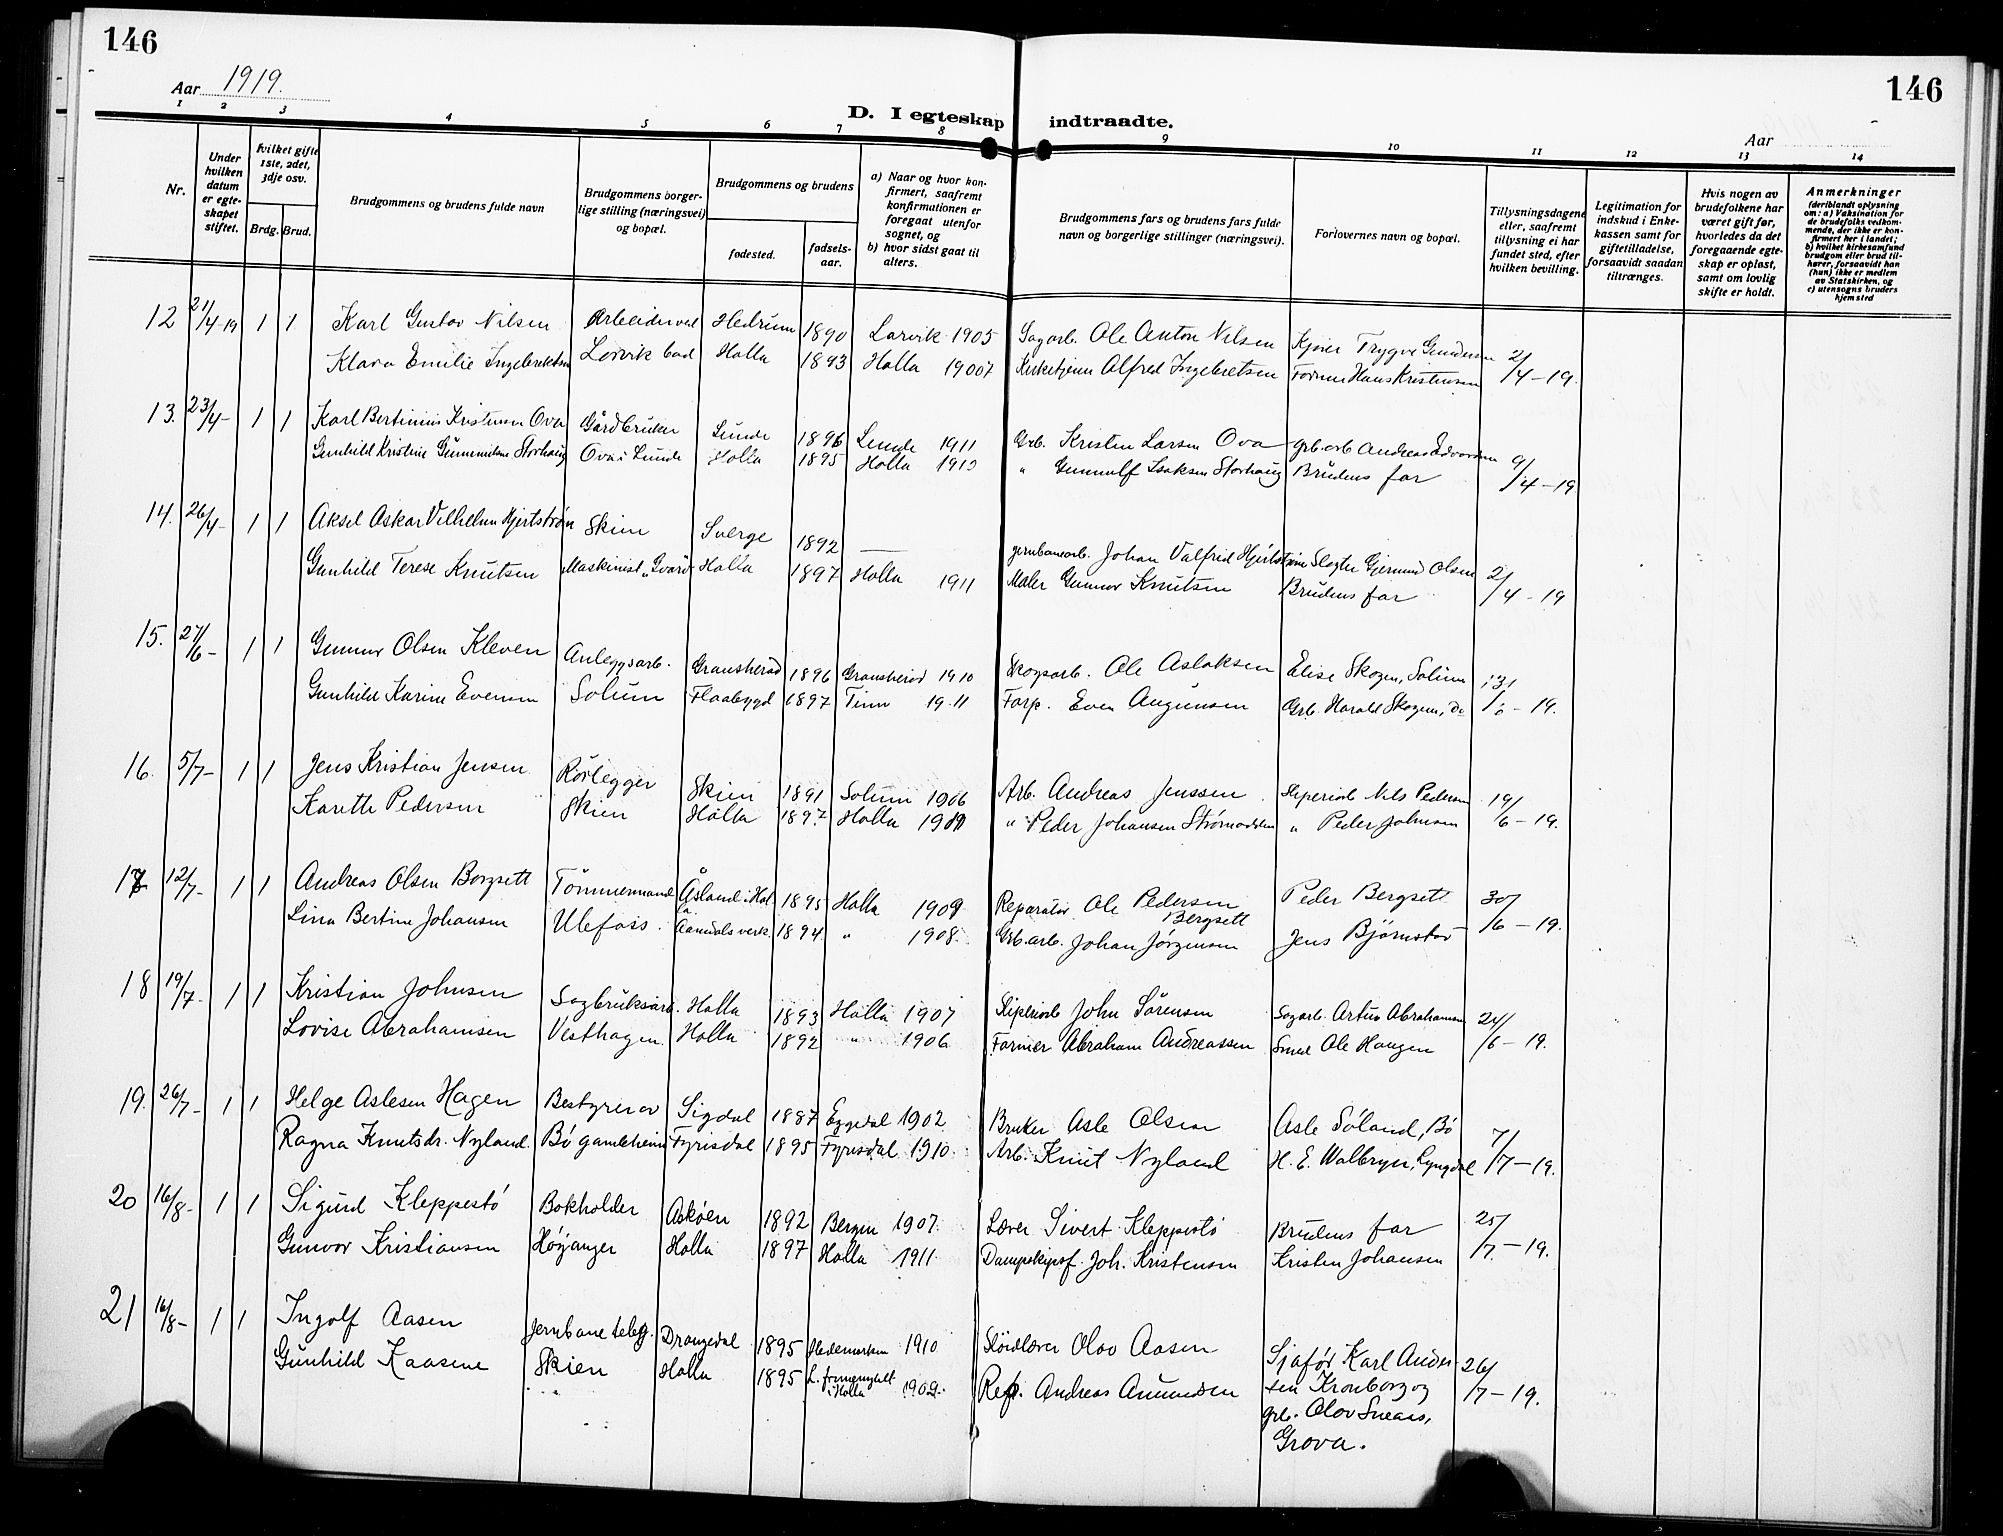 146
146
Aar 1919.
D. I egteskap indtraadte.
Aar
1 2 3 4 5 6 7 8 9 10 11 12 13 14
Nr.
Under hvilken datum er egteskapet stiftet.
hvilket gifte 1ste, 2det, 3dje osv.
Brdg. Brud.
Brudgommens og brudens fulde navn
Brudgommens borgerlige stilling (næringsvei) og bopæl.
Brudgommens og brudens
fødested. fødselsaar.
a) Naar og hvor konfirmert, saafremt konfirmationen er foregaat utenfor sognet, og
b) hvor sidst gaat til alters.
Brudgommens fars og brudens fars fulde navn og borgerlige stillinger (næringsvei).
Forlovernes navn og bopæl.
Tillysningsdagene eller, saafremt tillysning ei har fundet sted, efter hvilken bevilling.
Legitimation for indskud i Enkekassen samt for giftetilladelse, forsaavidt saadan tiltrænges.
Hvis nogen av brudefolkene har været gift før, hvorledes da det foregaaende egteskap er opløst, samt om lovlig skifte er holdt.
Anmerkninger (deriblandt oplysning om: a) Vaksination for de brudefolks vedkommende, der ikke er konfirmert her i landet; b) hvilket kirkesamfund brudgom eller brud tilhører, forsaavidt han (hun) ikke er medlem av Statskirken, og c) utensogns bruders hjemsted
12 21/4-19 1 1 Karl Gustav Nilsen Hedrum 1890 Larvik 1905 Sagarb. Ole Anton Nilsen Kjører Trygve Gundersen 2/4-19.
Klara Emilie Ingebrektsen Larvik bad Holla 1893 Holla 19007 Kirketjener Alfred Ingebretsen Former Hans Kristensen
13. 23/4- 1 1 Karl Bertinius Kristensen Ova Gårdbruker Lunde 1896 Lunde 1911 Grb. Kristen Larsen Ova grb.arb Andreas Edvardsen 9/4-19
Gunhild Kristine Gunnulfsen Storhaug Ova i Lunde Holla 1895 Holla 1910 " Gunnulf Isaksen Storhaug Brudens far
14. 26/4- 1 1 Aksel Askar Vilhelm Hjertstrøm Skien Sverge 1892 — jernbanearb. Johan Valfrid Hjertstrøm Slagter Gjermund Olsen 2/4-19
Gunhild Terese Knutsen Maskinist Holla 1897 Holla 1911 Maler Gunnar Knutsen Brudens far
15. 27/6- 1 1 Gunnar Olsen Kleven Anleggsarb. Gransherad 1896 Gransherad 1910 Skogsarb. Ole Aslaksen Elise Skogen, Solum 13/6-19.
Gunhild Karine Evensen Solum Flaabygd 1897 Tinn 1911 Forp. Even Augunsen Grb. Harald Skogen, Do
16. 5/7- 1 1 Jens Kristian Jensen Rørlegger Skien 1891 Solum 1906 Arb. Andreas Jenssen Sliperiarb Nils Pedersen 19/6-19.
Karette Pedersen Skien Holla 1897 Holla 1911 " Peder Johansen Strømodden " Peder Johnsen
17 12/7- 1 1 Andreas Olsen Bergsett Tømmermand Åsland i Hol. 1895 Holla 1909 Reparatør Ole Pedersen Bergsett Peder Bergsett 30/6-19.
Lina Bertine Johansen Ulefoss. Åamdals verk. 1894 " 1908. Grb.arb. Johan Jørgensen Jens Bjørnstad
18 19/7- 1 1 Kristian Johnsen Sagbruksarb. Holla 1893 Holla 1907 Sliperiarb John Sørensen Sagarb. Artur Abrahamsen 24/6-19.
Lovise Abrahamsen Vesthagen. Holla 1892 " 1906 Former Abraham Andreassen Smed Ole Haugen
19. 26/7- 1 1 Helge Aslesen Hagen Bestyrer av Sigdal 1887 Eggedal 1902 Bruker Asle Olsen Asle Søland, Bø 7/7-19.
Ragna Knutsdr. Nyland Bø gamleheim Fyrisdal 1895 Fyrisdal 1910. Arb. Knut Nyland H. E. Walbryn, Lyngdal
20 16/8- 1 1 Sigurd Kleppestø Bokholder Askøen 1892 Bergen 1907. Lærer Sivert Kleppestø Brudens far 25/7-19.
Gunvor Kristiansen Høyanger Holla 1897 Holla 1911. Dampskipsf. Joh. Kristensen Kristen Johansen
21 16/8- 1 1 Ingolf Aasen Jernbane telegr. Drangedal 1895 Hedemarken 1910 Sløidlærer Olav Aasen Sjafør Karl Andersen Kronborg og grb. Olav Sneaas, Grova. 26/7-19.
Gunhild Kaasene Skien Holla 1895 i Holla 1909. Rep. Andreas Amundsen